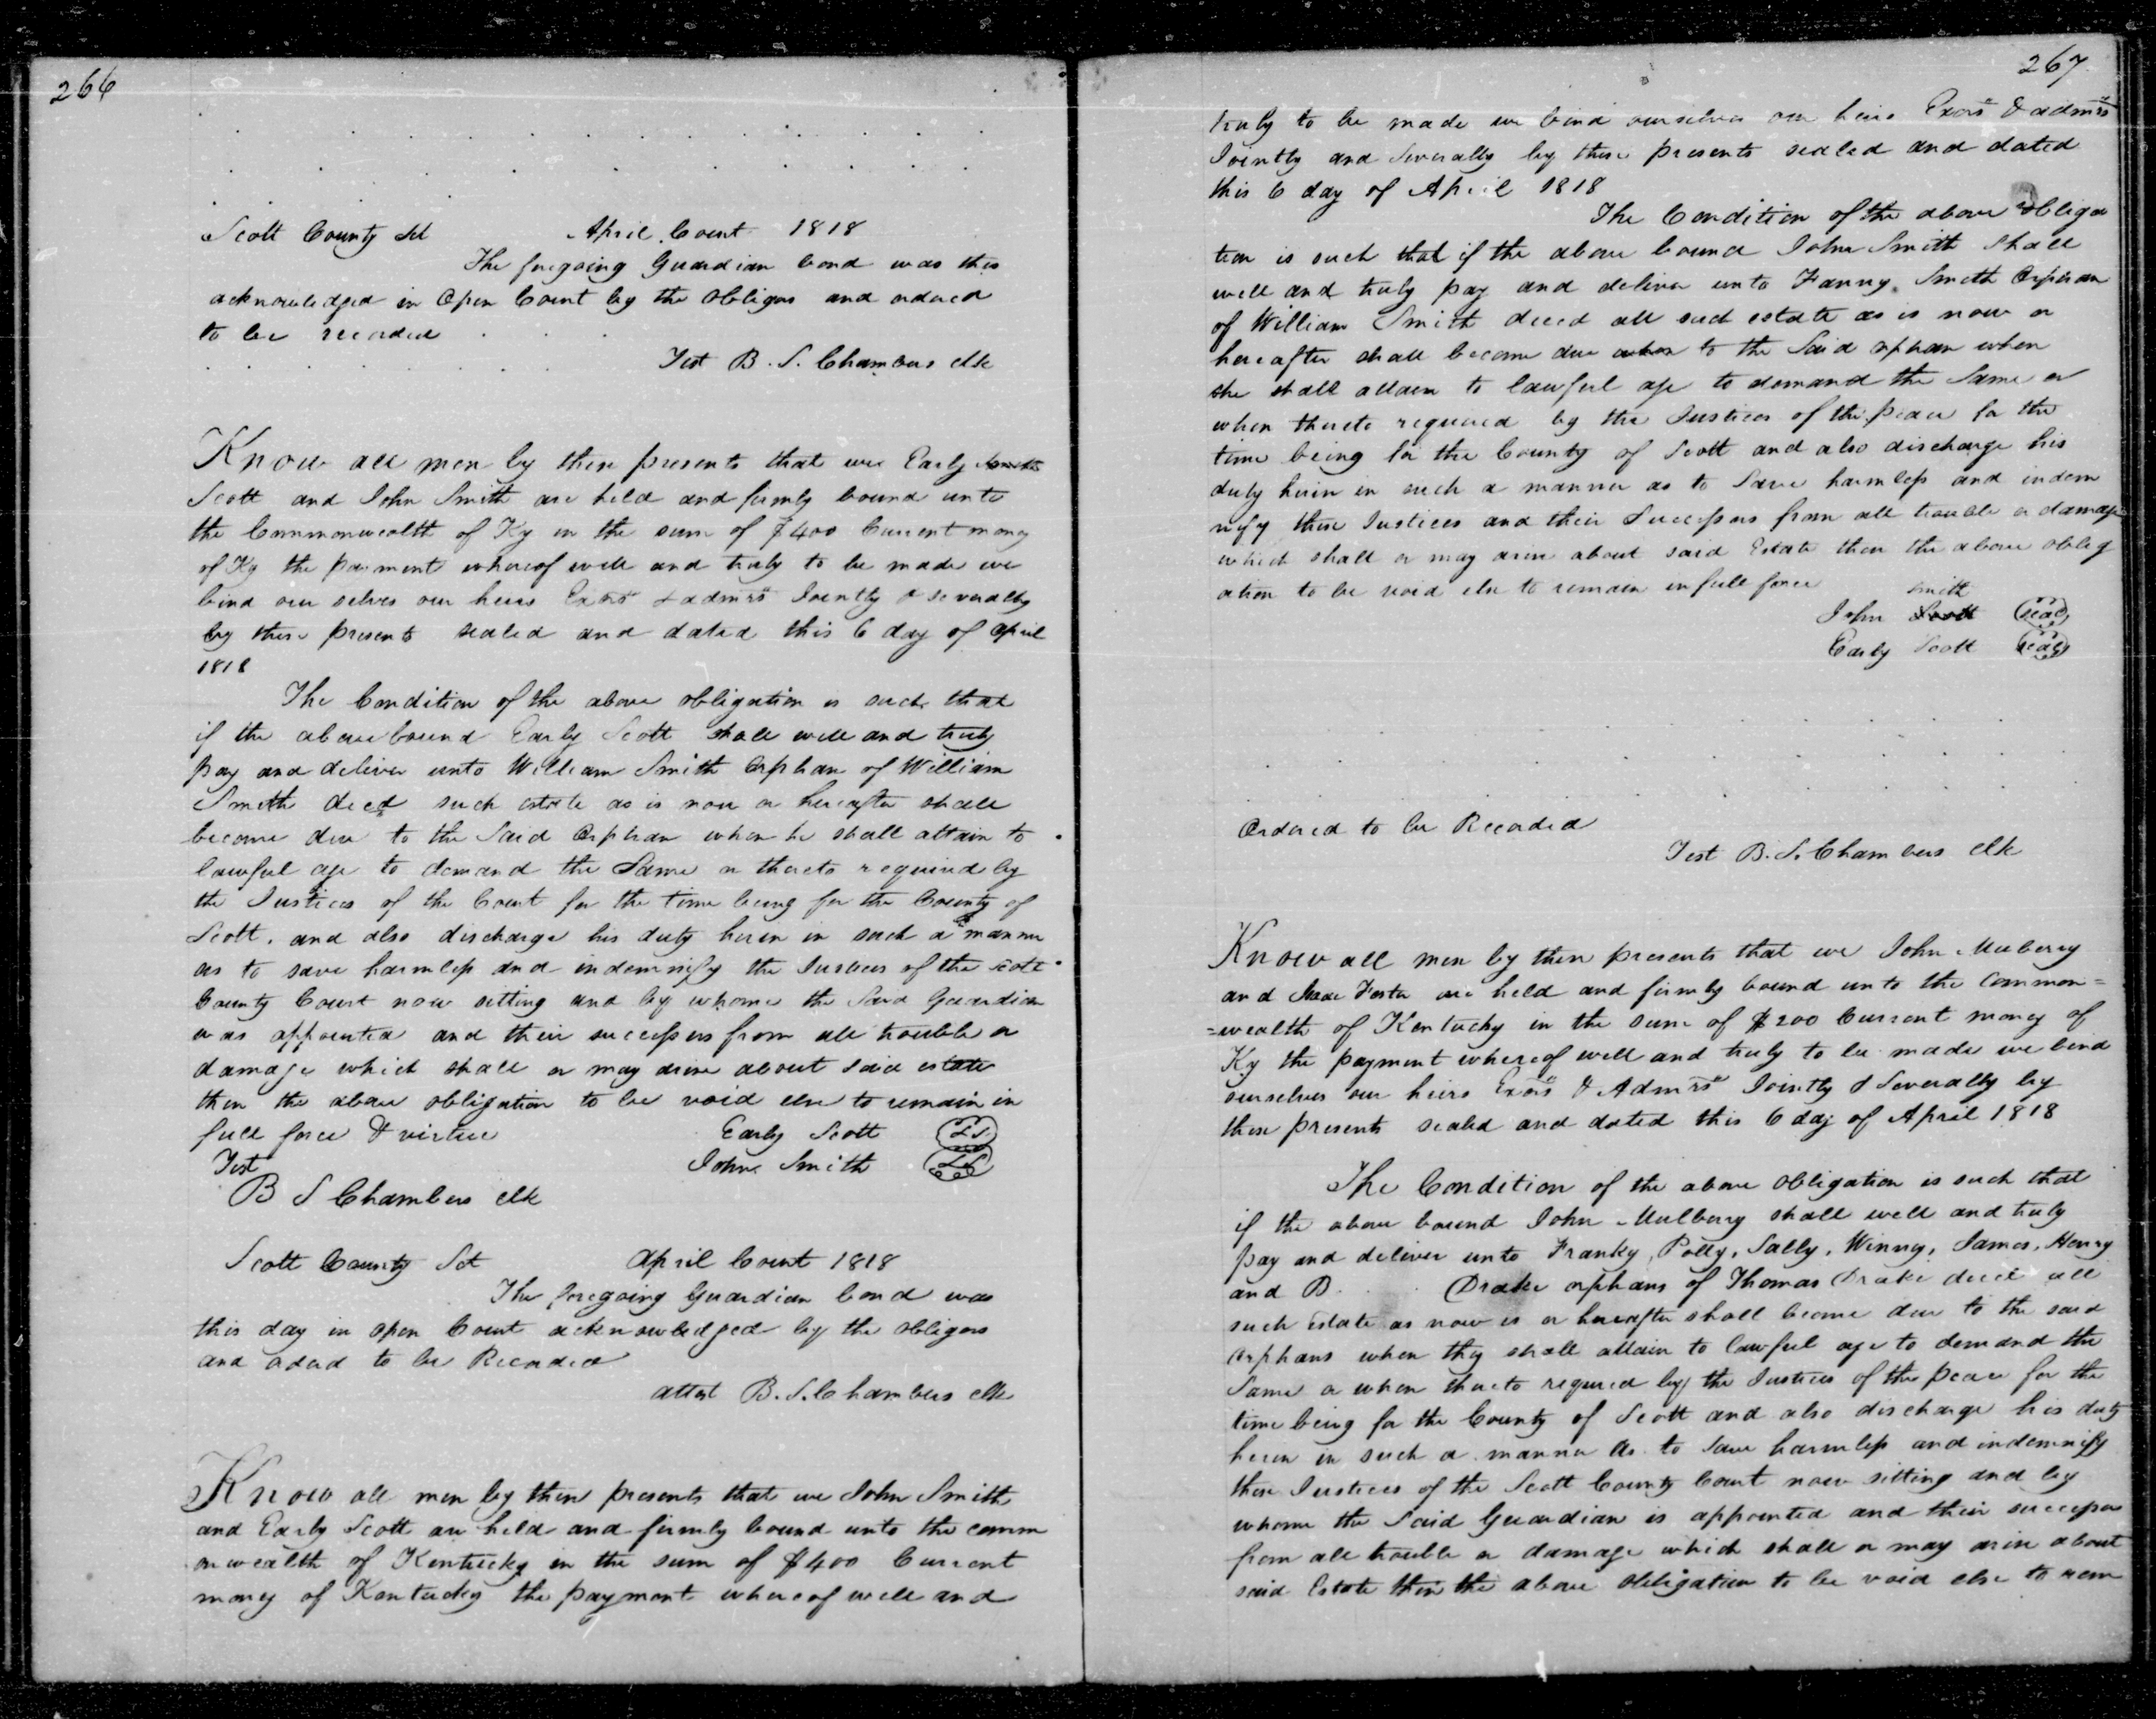 266
Scott County Sct April Court 1818
The foregoing Guardian bond was this
acknowledged in Open Court by the obligors and ordered
to be recorded
Test B. S. Chambers clk
Know all men by these presents that we Early
Scott and John Smith are held and firmly bound unto
the Commonwealth of Ky in the sum of $400 Current money
of Ky the payment whereof well and truly to be made we
bind our selves our heirs Exors & admrs Jointly & severally
by these presents sealed and dated this 6 day of april
1818
The Condition of the above obligation is such that
if the above bound Early Scott shall well and truly
pay and deliver unto William Smith Orphan of William
Smith decd such estate as is now or hereafter shall
become due to the said Orphan when he shall attain to
lawful age to demand the Same or thereto required by
the Justices of the Court for the time being for the County of
Scott. and also discharge his duty herein in such a manner
as to save harmless and indemnify the Justices of the Scott
County Court now sitting and by whome the Said Guardian
was appointed and their successors from all trouble or
damage which shall or may arise about said estate
then the above obligation to be void else to remain in
full force & virtue Early Scott LS.
Test John Smith LS
B S Chambers clk
Scott County Sct April Court 1818
The foregoing Guardian bond was
this day in open Court acknowledged by the obligors
and ordered to be Recorded
attest B. S. Chambers clk
Know all men by these presents that we John Smith
and Early Scott are held and firmly bound unto the comm
onwealth of Kentucky in the sum of $400 Current
money of Kentucky the payment whereof well and
267
truly to be made we bind ourselves our heirs Exors & admrs
Jointly and Severally by these presents sealed and dated
this 6 day of April 1818
The Condition of the above obliga
tion is such that if the above bound John Smith shall
well and truly pay and deliver unto Fanny Smith Orphan
of William Smith decd all such estate as is now or
hereafter shall become due to the Said orphan when
she shall attain to lawful age to demand the Same or
when thereto required by the Justices of the peace for the
time being for the County of Scott and also discharge his
duty herein in such a manner as to Save harmless and indem
nify those Justices and their Successors from all trouble or damage
which shall or may arise about said Estate then the above oblig
ation to be void else to remain in full force
smith
John Scott seal
Early Scott seal
Ordered to be Recorded
Test B. S. Chambers clk
Know all men by these presents that we John Mulberry
and Foster are held and firmly bound unto the common=
=wealth of Kentucky in the sum of $200 Current money of
Ky the payment whereof well and truly to be made we bind
ourselves our heirs Exors & Admrs Jointly & Severally by
these presents sealed and dated this 6 day of April 1818
The Condition of the above obligation is such that
if the above bound John Mulberry shall well and truly
pay and deliver unto Franky, Polly, Sally, Winny, James, Henry
and B Drake orphans of Thomas Drake decd all
such Estate as now is or hereafter shall become due to the said
orphans when they shall attain to lawful age to demand the
Same or when thereto required by the Justices of the peace for the
time being for the County of Scott and also discharge his duty
herein in such a manner as to Save harmless and indemnify
those Justices of the Scott County Court now sitting and by
whome the Said Guardian is appointed and their successors
from all trouble or damage which shall or may arise about
said Estate then the above obligation to be void else to rem